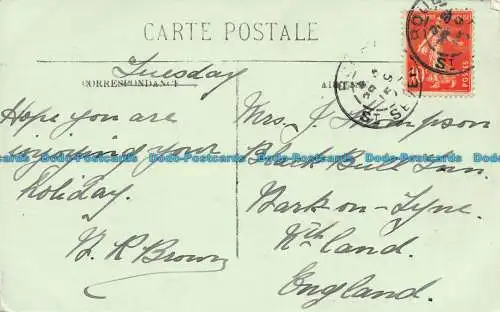 CARTE POSTALE
Tuesday
CORRESPONDANCE
Hope you are
enjoying your
holiday.
Mrs. J. Thompson
Black Bull Inn.
Wark-on-Tyne.
Nth land.
England.
POSTES
Dodo-Postcards Dodo-Postcards Dodo-Postcards Dodo-Postcards Dodo-Postcards